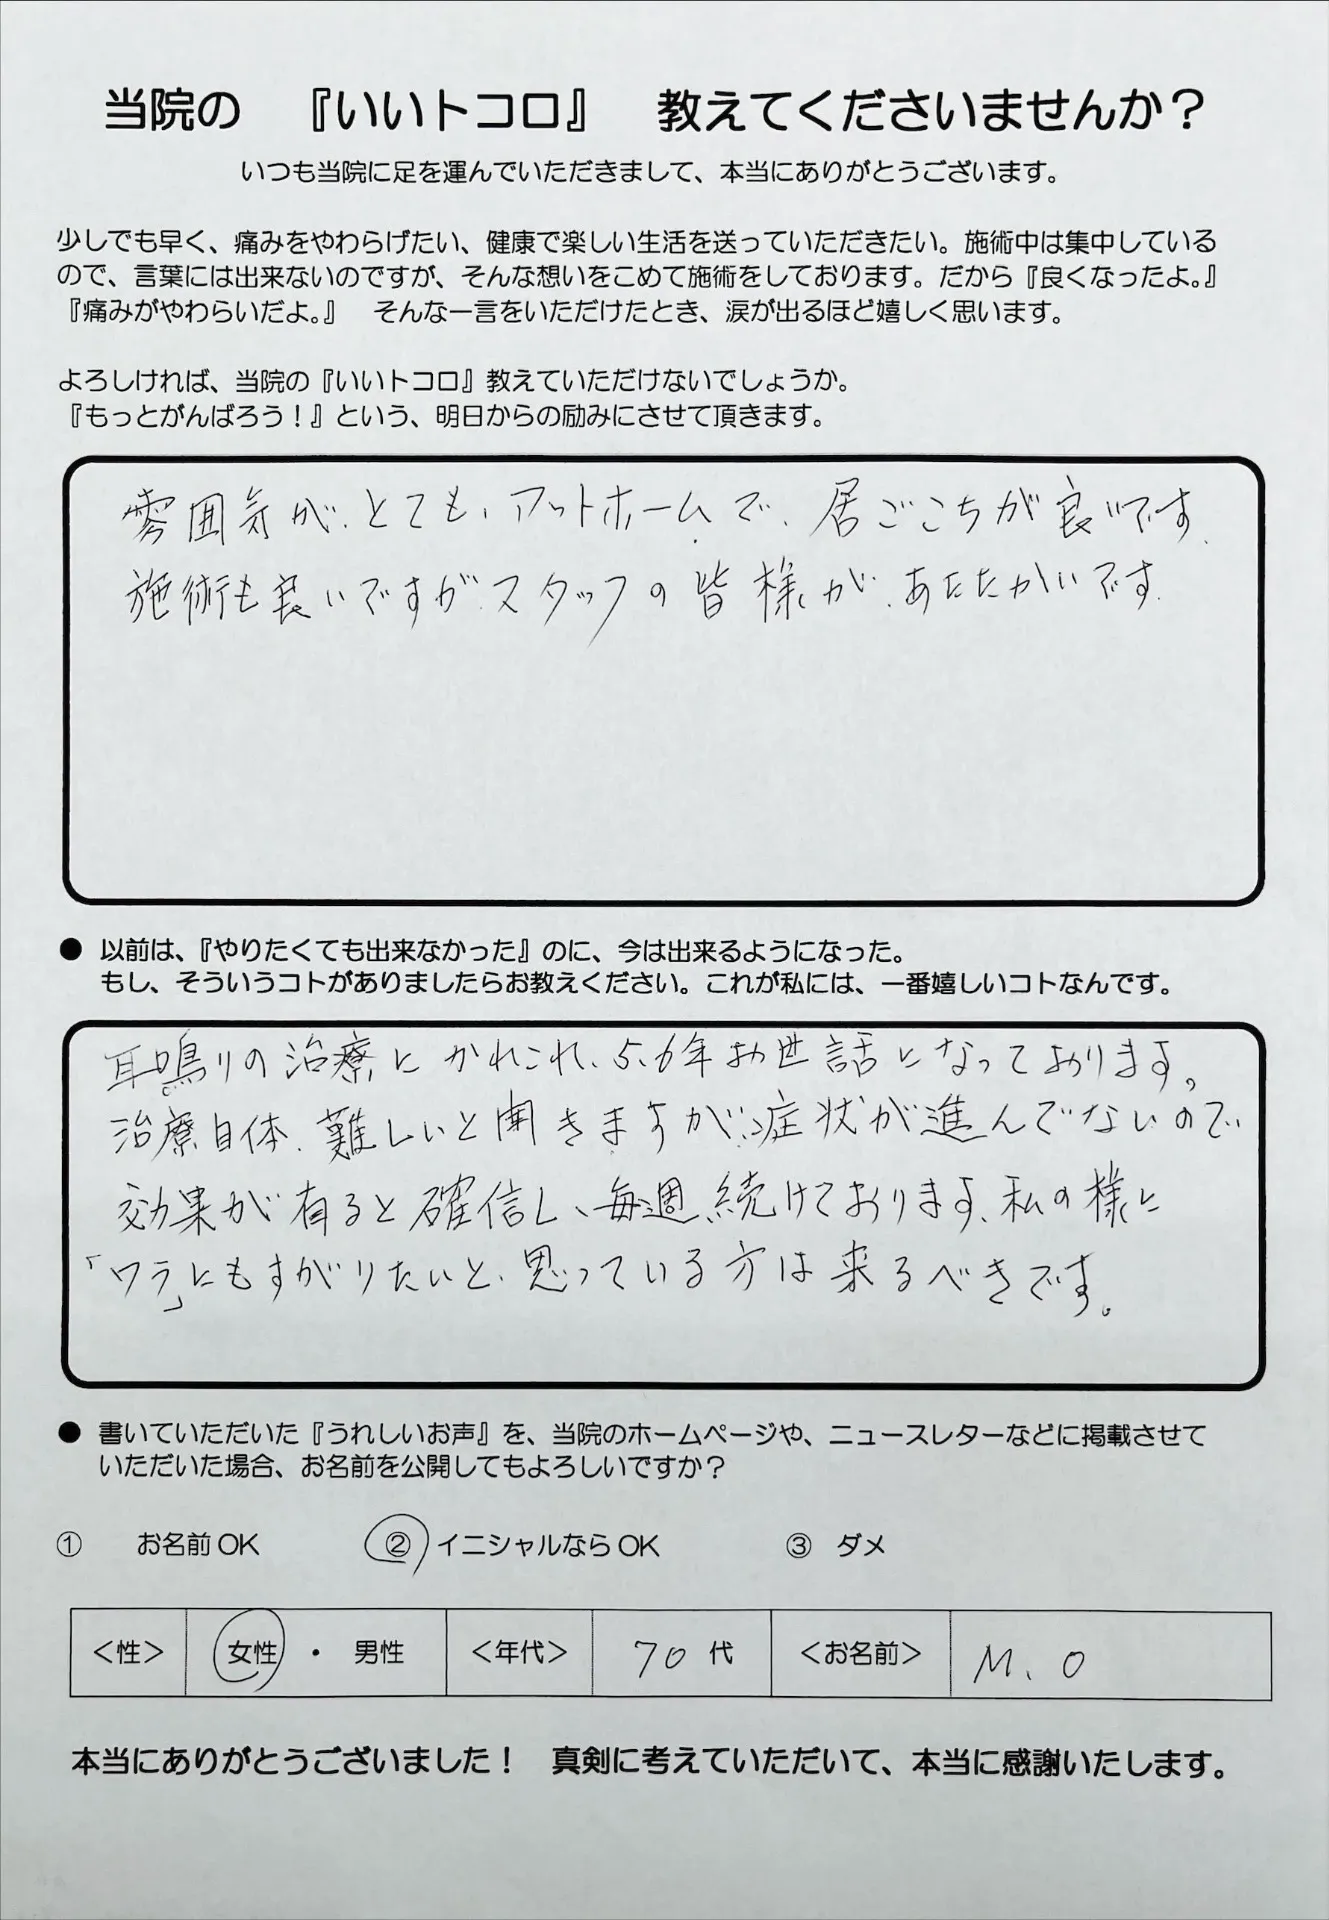 当院の　『いいトコロ』　教えてくださいませんか？
いつも当院に足を運んでいただきまして、本当にありがとうございます。
少しでも早く、痛みをやわらげたい、健康で楽しい生活を送っていただきたい。施術中は集中している
ので、言葉には出来ないのですが、そんな想いをこめて施術をしております。だから『良くなったよ。』
『痛みがやわらいだよ。』　そんな一言をいただけたとき、涙が出るほど嬉しく思います。
よろしければ、当院の『いいトコロ』教えていただけないでしょうか。
『もっとがんばろう！』という、明日からの励みにさせて頂きます。
雰囲気が、とても、アットホームで、居ごこちが良いです。
施術も良いですが、スタッフの皆様が、あたたかいです。
● 以前は、『やりたくても出来なかった』のに、今は出来るようになった。
もし、そういうコトがありましたらお教えください。これが私には、一番嬉しいコトなんです。
耳鳴りの治療にかれこれ、5.6年お世話になっております。
治療自体、難しいと聞きますが、症状が進んでないので
効果が有ると確信し、毎週、続けております、私の様に
「ワラ」にもすがりたいと、思っている方は来るべきです。
● 書いていただいた『うれしいお声』を、当院のホームページや、ニュースレターなどに掲載させて
いただいた場合、お名前を公開してもよろしいですか？
①　お名前 OK　②　イニシャルなら OK　③　ダメ
＜性＞　女性　・　男性　＜年代＞　70 代　＜お名前＞　M. O
本当にありがとうございました！　真剣に考えていただいて、本当に感謝いたします。